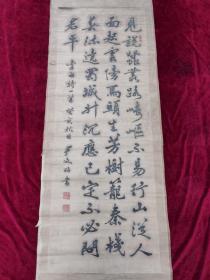 見說蠶叢路崎嶇不易行山從人
面起雲傍馬頭生芳樹籠秦棧
春流遶蜀城升沉應已定不必問
君平 李白詩